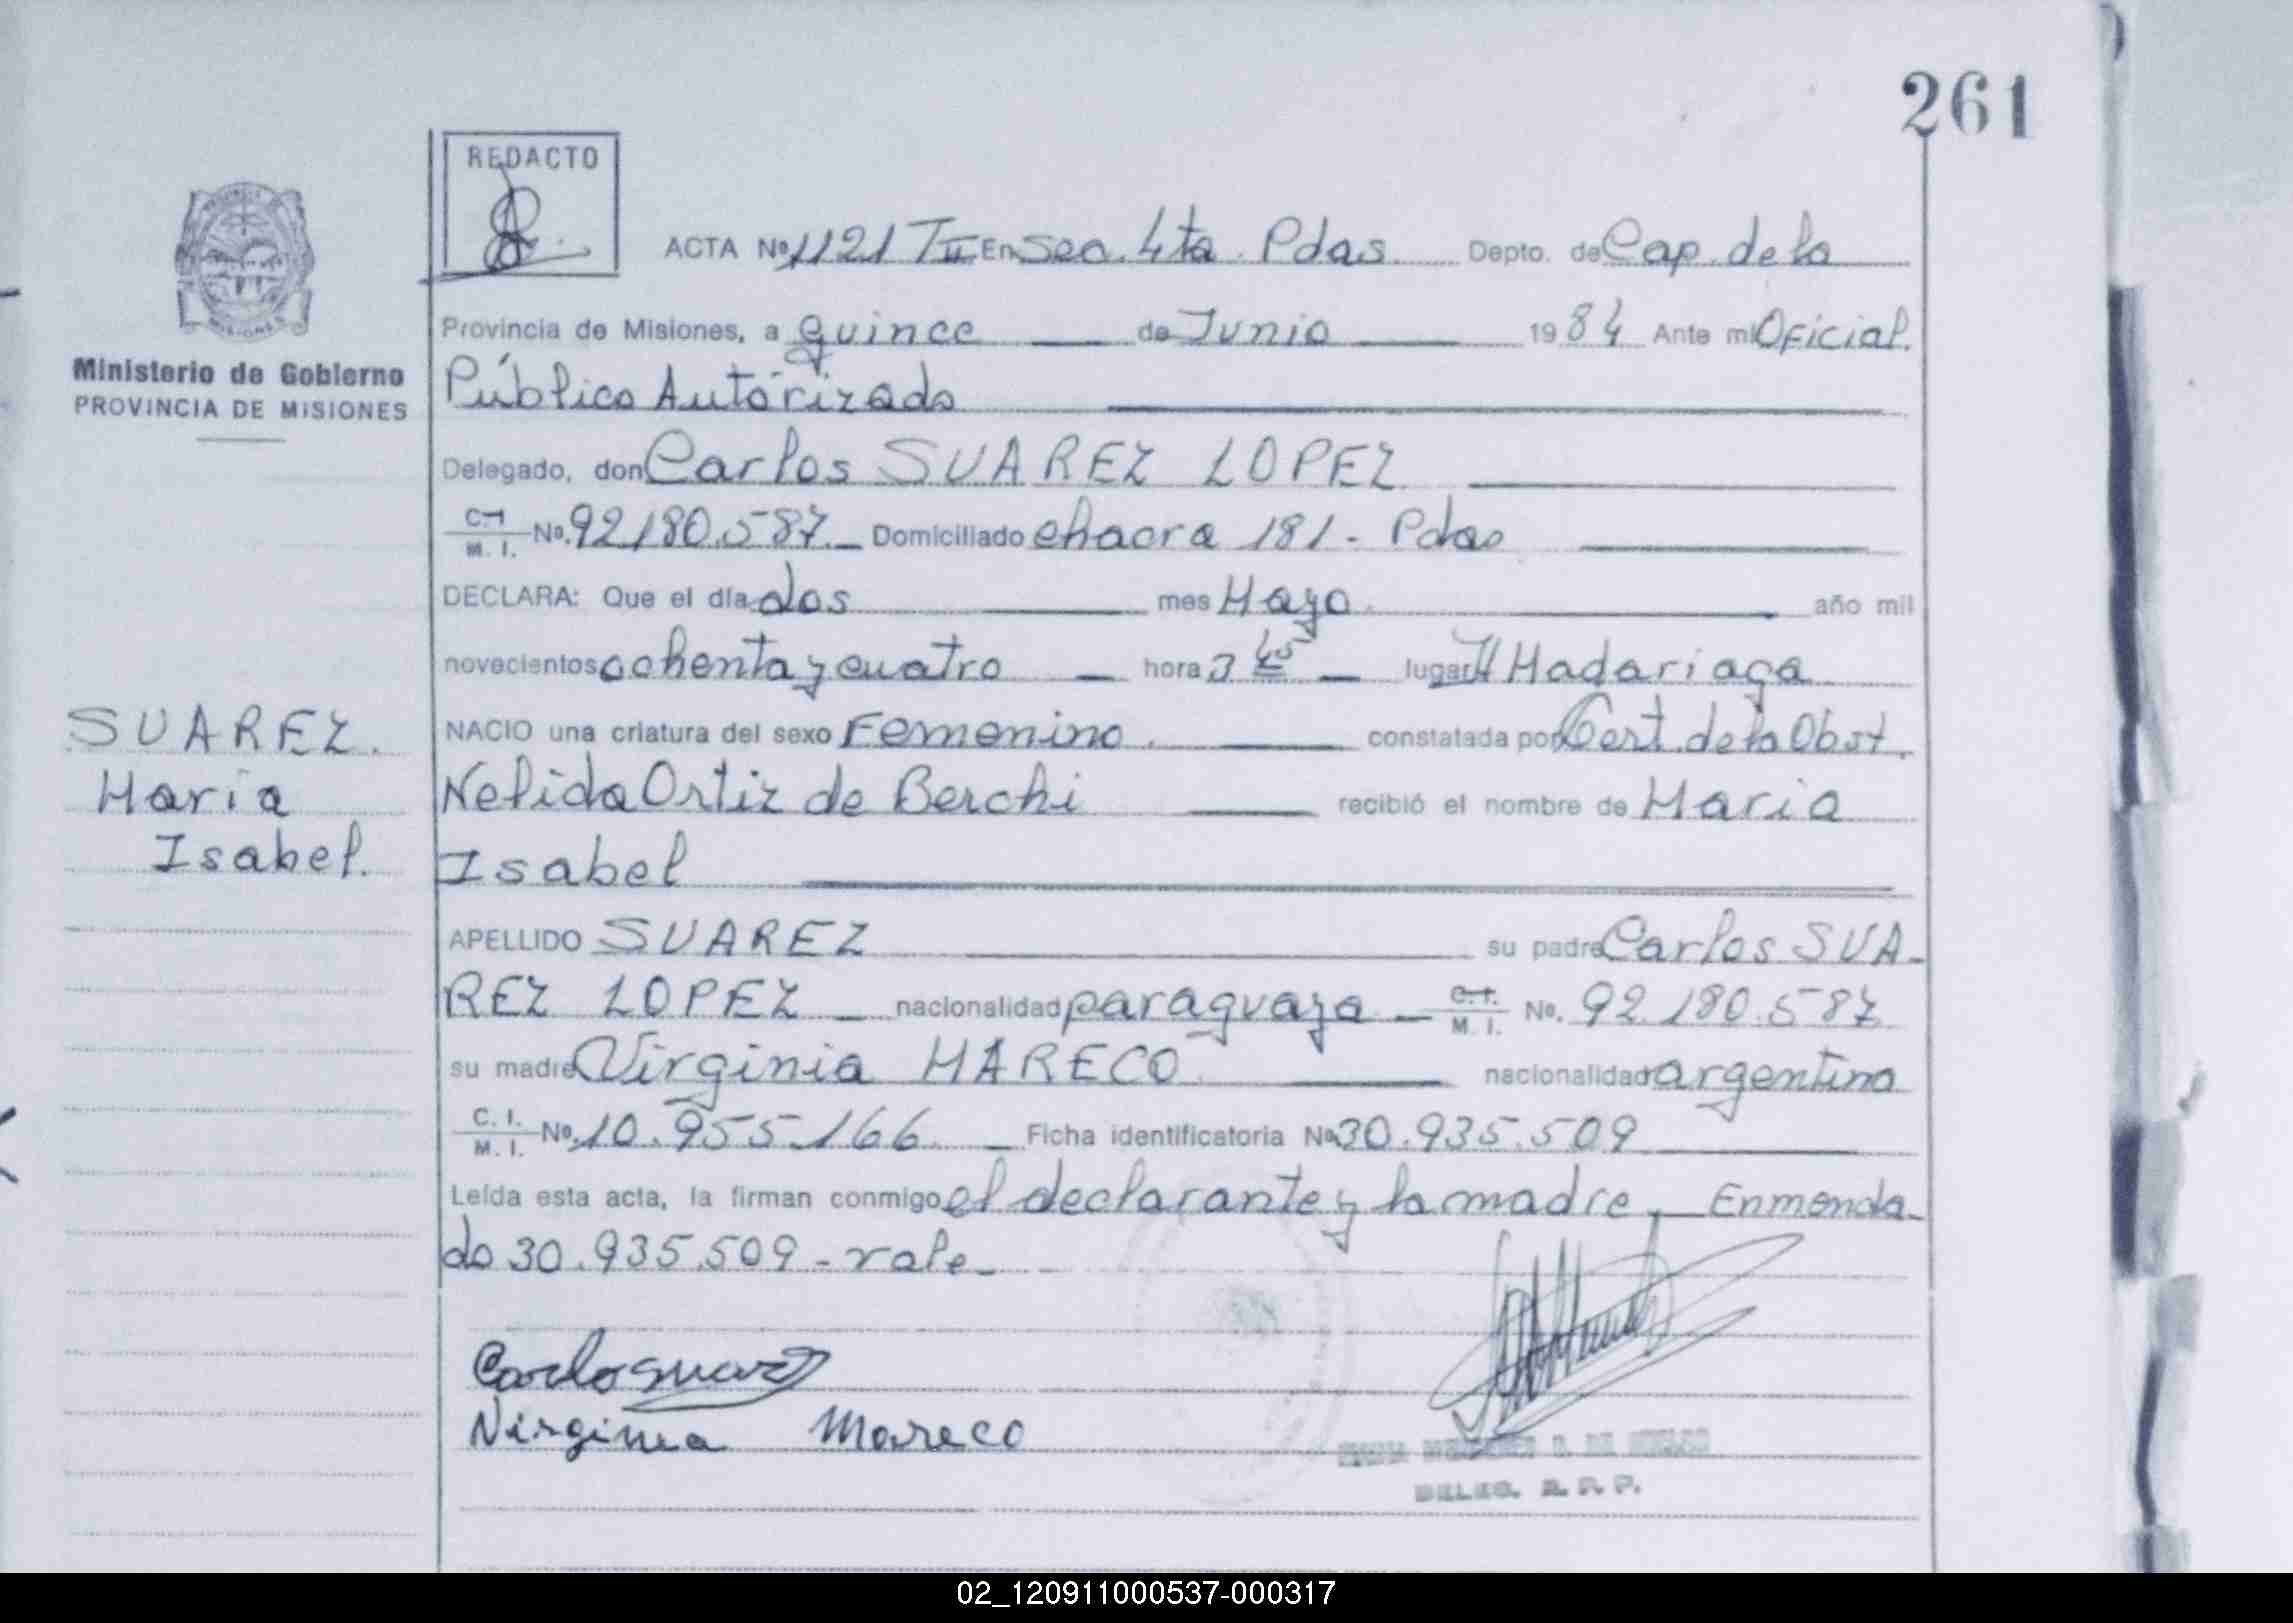 261
REDACTO
ACTA Nº 1121 TII En Sec. 4ta. Pdas Depto. de Cap. de la
Provincia de Misiones, a quince de Junio 1984 Ante mi Oficial.
Ministerio de Gobierno
PROVINCIA DE MISIONES
Público Autorizado
Delegado, don Carlos SUAREZ LOPEZ
C.I. M. I. Nº. 92180.587. Domiciliado chacra 181 - Pdas
DECLARA: Que el día dos mes Mayo. año mil
novecientos ochenta y cuatro hora 3 45 lugar H Madariaga
SUAREZ.
María
Isabel.
NACIO una criatura del sexo Femenino. constatada por Cert. de la Obst.
Nelida Ortiz de Berchi recibió el nombre de Maria
Isabel
APELLIDO SUAREZ su padre Carlos SUA-
REZ LOPEZ nacionalidad paraguaya C.I. M. I. Nº. 92.180.587
su madre Virginia MARECO nacionalidad argentina
C. I. M. I. Nº. 10.955.166 Ficha identificatoria Nº 30.935.509
Leída esta acta, la firman conmigo el declarante y la madre, Enmenda-
do 30.935.509 - vale-
Carlos Suarez
Virginia Mareco
DELEG. R. P.
02_120911000537-000317